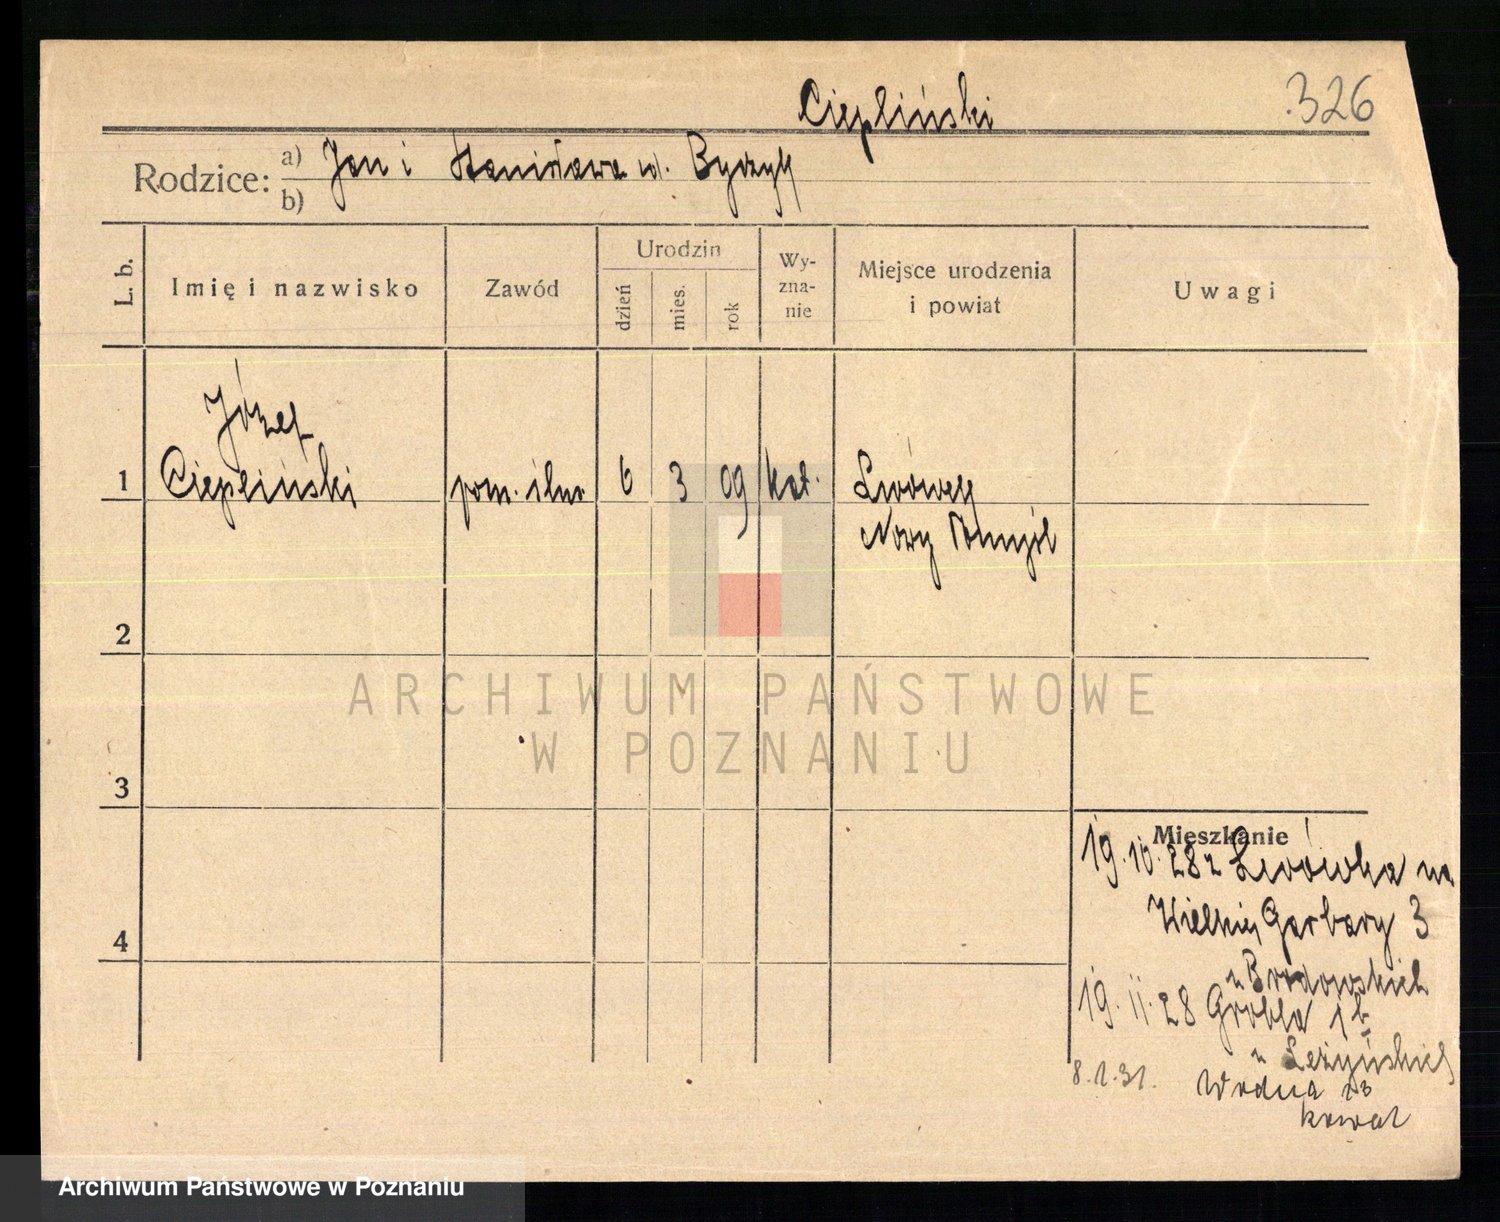 Ciepliński
326
Rodzice:
a) Jan i Stanisława
b)
L. b.
Imię i nazwisko
Zawód
Urodzin
dzień
mies.
rok
Wy-
zna-
nie
Miejsce urodzenia
i powiat
Uwagi
Józef
1 Ciepliński pom. 6 3 09 kat. Lwówek
Nowy Tomyśl
2
ARCHIWUM PAŃSTWOWE
W POZNANIU
3
Mieszkanie
19.10.28 z Lwówka na
Wielkiej Garbary 3
u Brodowskich
4
19.11.28 Grobla 1b
u
8.1.31. Wodna 23
Archiwum Państwowe w Poznaniu